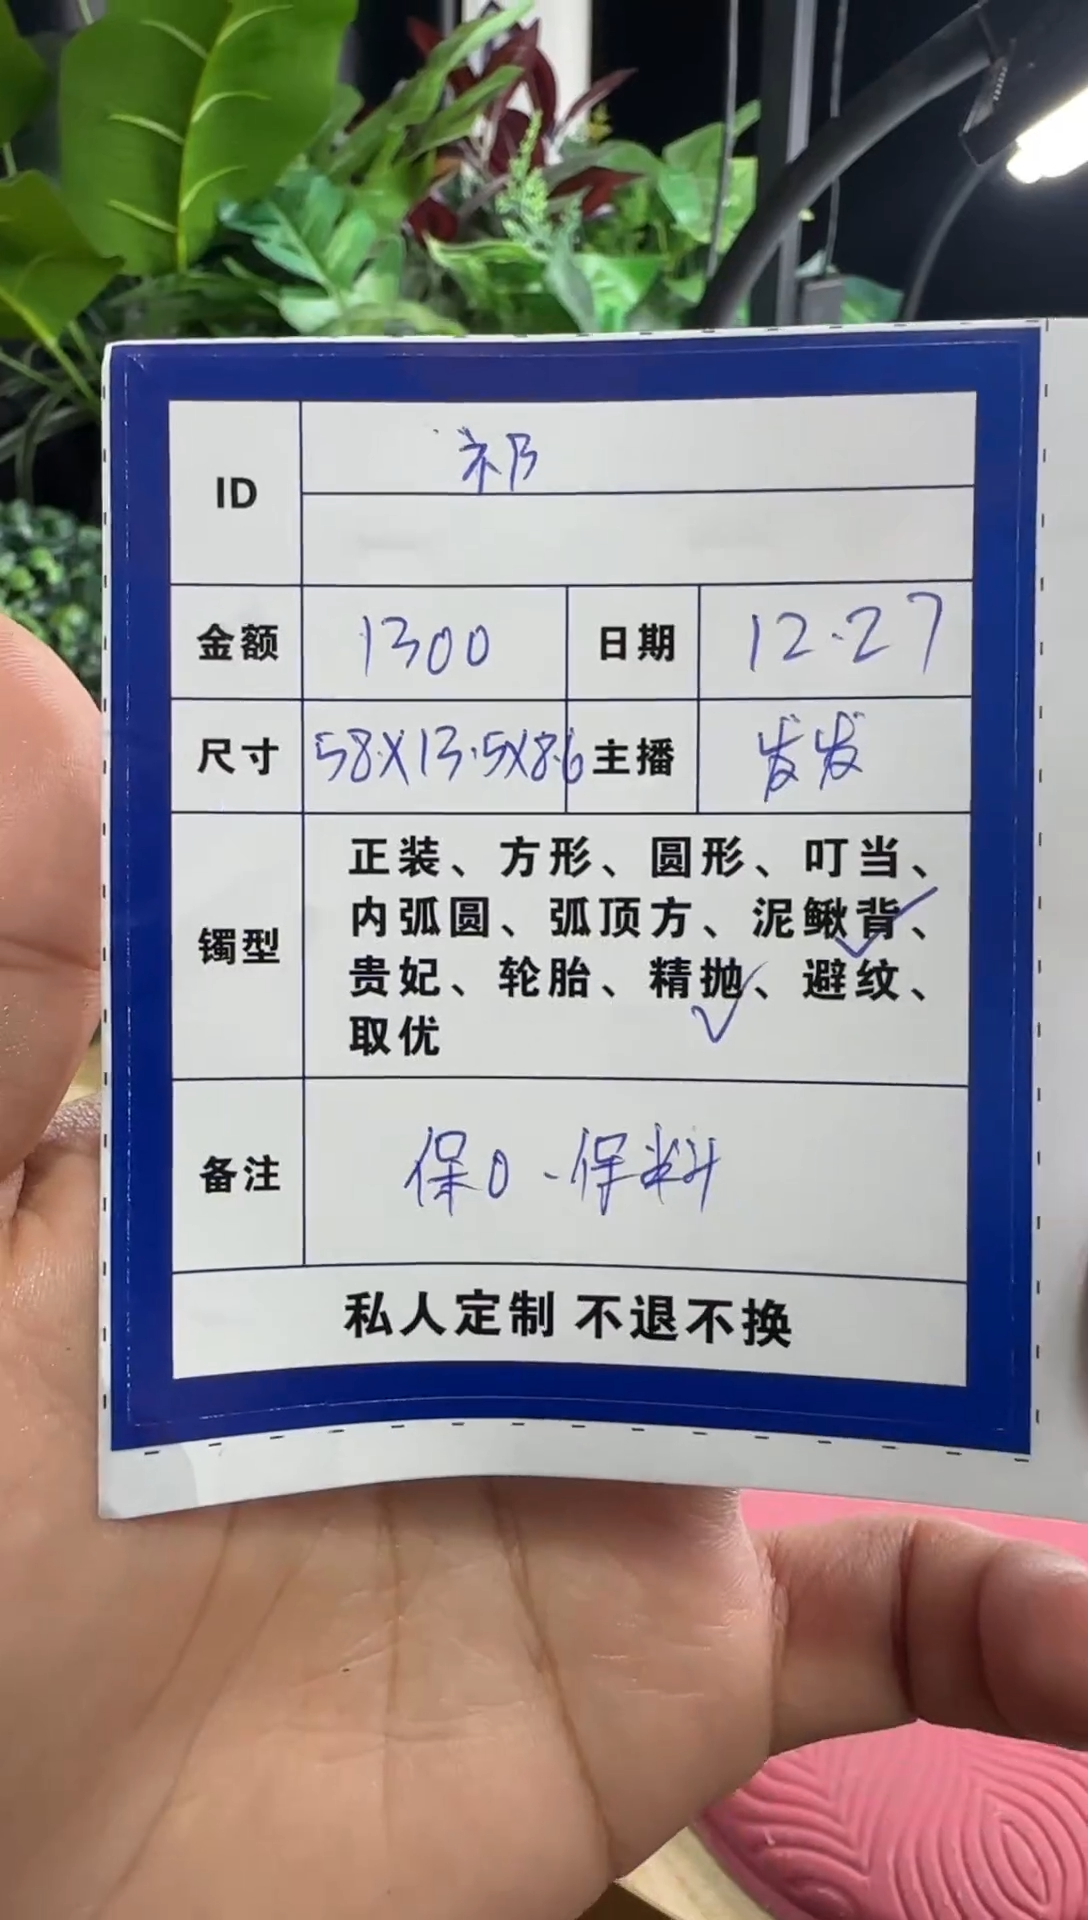 ID 祁
金额 1300 日期 12.27
尺寸 58X13.5X8.6 主播 发发
镯型
正装、方形、圆形、叮当、
内弧圆、弧顶方、泥鳅背、
贵妃、轮胎、精抛、避纹、
取优
备注 保0-保料
私人定制 不退不换